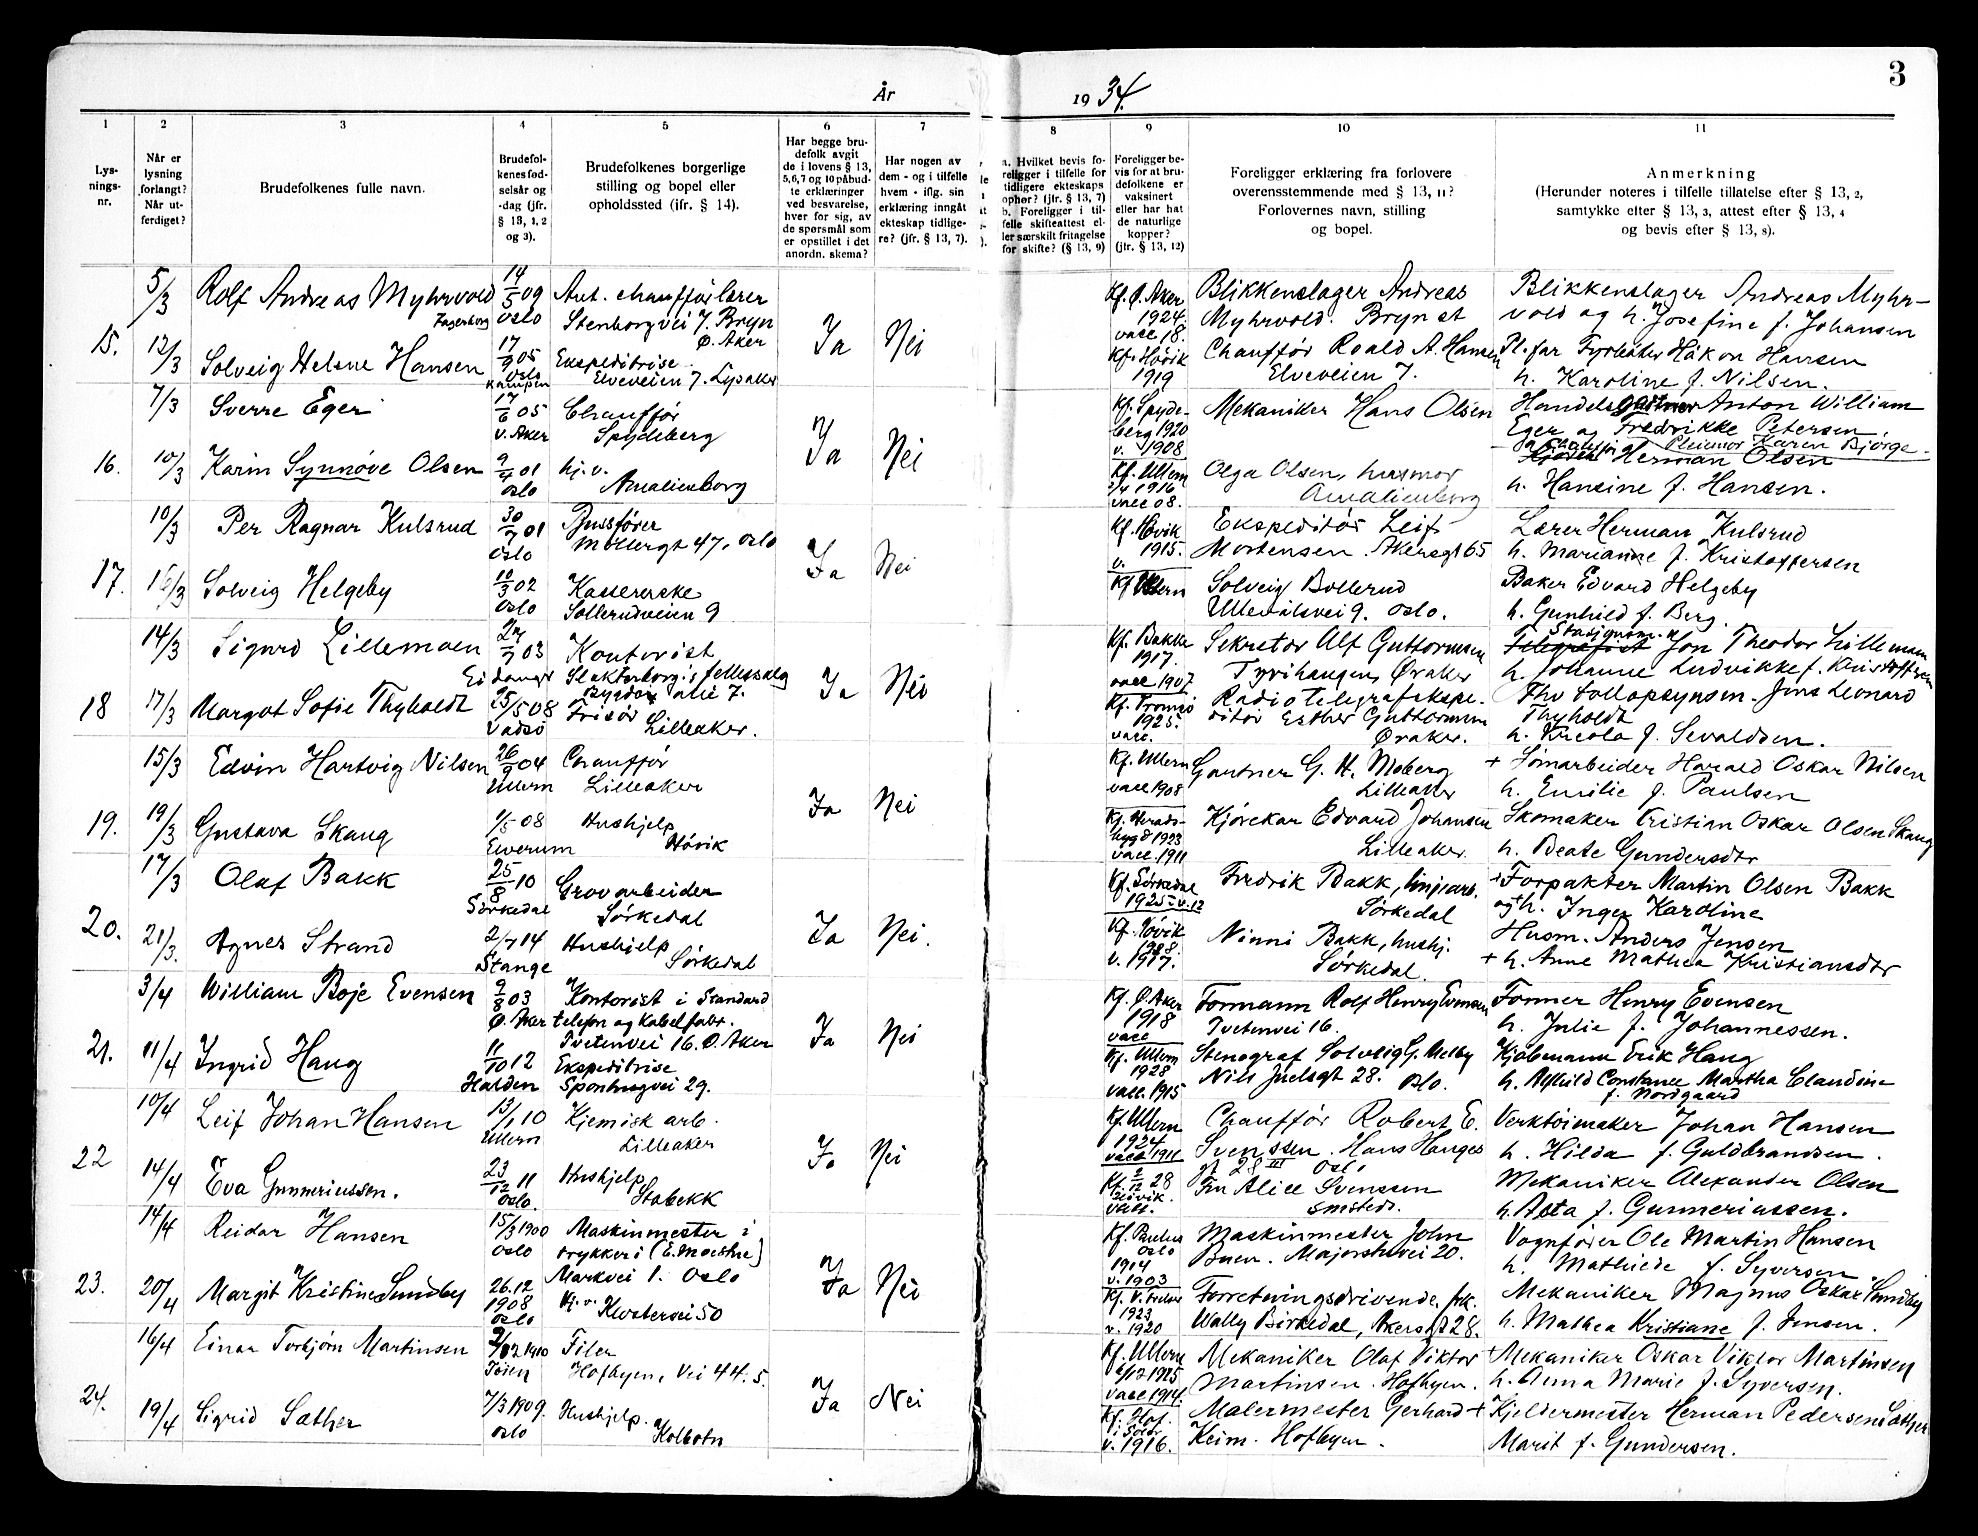 3
År 1934.
1 2 3 4 5 6 7 8 9 10 11
Lys-
nings-
nr.
Når er
lysning
forlangt?
Når ut-
ferdiget?
Brudefolkenes fulle navn.
Brudefol-
kenes fød-
selsår og
-dag (jfr.
§ 13, 1, 2
og 3).
Brudefolkenes borgerlige
stilling og bopel eller
opholdssted (ifr. § 14).
Har begge bru-
defolk avgit
de i lovens § 13,
5,6,7 og 10 påbud-
te erklæringer
ved besvarelse,
hver for sig, av
de spørsmål som
er opstillet i det
anordn. skema?
Har nogen av
dem - og i tilfelle
hvem - iflg. sin
erklæring inngåt
ekteskap tidlige-
re? (jfr. § 13, 7).
a. Hvilket bevis fo-
religger i tilfelle for
tidligere ekteskaps
ophør? (jfr. § 13, 7)
b. Foreligger i til-
felle skifteattest el-
ler særskilt fritagelse
for skifte? (§ 13, 9)
Foreligger be-
vis for at bru-
defolkene er
vaksinert
eller har hat
de naturlige
kopper?
(jfr. § 13, 12)
Foreligger erklæring fra forlovere
overensstemmende med § 13, 11?
Forlovernes navn, stilling
og bopel.
Anmerkning
(Herunder noteres i tilfelle tillatelse efter § 13, 2,
samtykke efter § 13, 3, attest efter § 13, 4
og bevis efter § 13, 8).
15.
5/3 Rolf Andreas Myhrvold
14/5 09
Oslo
Fagerborg
Aut. chaufførlærer
Stenborgvei 7. Bryn
Ø. Aker
Ja Nei
Kf. Ø. Aker
1924.
vacc 18.
Blikkenslager Andreas
Myhrvold. Bryn st
Blikkenslager Andreas Myhr-
vold og h. Josefine f. Johansen
12/3 Solveig Helene Hansen
17/9 05
Oslo
Kampen
Ekspeditrise
Elveveien 7. Lysaker
Kf. Høvik
1919
Chauffør Roald A. Hansen
Elveveien 7.
Pl. far Fyrbøter Håkon Hansen
h. Karoline f. Nilsen.
16.
7/3 Sverre Eger
17/6 05
V. Aker
Chauffør
Spydeberg
Ja Nei
Kf. Spyde-
berg 1920
v. 1908
Mekaniker Hans Olsen
Handelsgartner Anton William
Eger og Fredrikke Petersen
10/3 Karin Synnøve Olsen
9/9 01
Oslo
hj. v.
Amalienborg
Kf. Ullern
2/4 1916
vacc 08.
Olga Olsen, husmor
Amalienborg
Eleonor Karen Bjørge
Herman Olsen
h. Hansine f. Hansen.
17.
10/3 Per Ragnar Kulsrud
30/7 01
Oslo
Bussfører
Møllergt 47, Oslo
Ja Nei
Kf. Høvik
1915.
v.
Ekspeditør Leif
Mortensen. Akersgt 65
Lærer Herman Kulsrud
h. Marianne f. Kristoffersen
16/3 Solveig Helgeby
10/3 02
Oslo
Kassererske
Sollerudveien 9
Kf Ullern
Solveig Bollerud
Ullevålsvei 9. Oslo.
Baker Edvard Helgeby
h. Gunhild f. Berg.
18
14/3 Sigurd Lillemoen
27/7 03
Eidanger
Kontorist
Slakterborgis fellessalg
Bygdøy alle 7.
Ja Nei
Kf. Bakke
1917.
vacc 1907
Sekretær Alf Guttormsen
Tyrihaugen, Øraker
Stasjonsm.
Telegrafist Jon Theodor Lillemoen
h. Johanne Ludvikke f. Kristoffersen
17/3 Margot Sofie Thyholdt
25/5 08
Vadsø
Frisør
Lilleaker.
Kf. Tromsø
1925.
vacc.
Radiotelegrafekspe-
ditør Esther Guttormsen
Øraker.
Fhv Tolloppsynsm. Jens Leonard
Thyholdt
h. Nicola f. Sevaldsen.
19.
15/3 Edvin Hartvig Nilsen
26/9 04
Ullern
Chauffør
Lilleaker
Ja Nei
Kf. Ullern
vacc 1908
Gartner G. H. Moberg
Lilleaker
+ Tømarbeider Harald Oskar Nilsen
h. Emilie f. Paulsen
19/3 Gustava Skaug
1/5 08
Elverum
Hushjelp
Høvik
Kf. Herads-
bygd 1923
vacc. 1911
Kjørekar Edvard Johansen
Lilleaker
Skomaker Kristian Oskar Olsen Skaug
h. Beate Gundersdtr
20.
17/3 Olaf Bakk
25/8 10
Sørkedal
Grovarbeider
Sørkedal
Ja Nei.
Kf. Sørkedal
1925 - v. 12
Fredrik Bakk, linjearb.
Sørkedal
+ Forpakter Martin Olsen Bakk
og h. Inger Karoline
21/3. Agnes Strand
2/7 14
Stange
Hushjelp
Sørkedal
Kf. Høvik
1928.
v. 1917.
Ninni Bakk, hushj.
Sørkedal
Husm. Anders Jensen
+ h. Anne Mathea Kristiansdtr
21.
3/4 William Boje Evensen
9/8 03
Ø. Aker
Kontorist i Standard
telefon og Kabelfabr.
Tvetenvei 16. Ø. Aker
Ja Nei
Kf. Ø. Aker
1918
vacc
Formann Rolf Henry Evensen
Tvetenvei 16.
Former Henry Evensen
h. Julie f. Johannessen.
11/4 Ingrid Haug
11/10 12
Halden
Ekspeditrise
Sponhugvei 29.
Kf. Ullern
1928
vacc. 1915
Stenograf Solveig G. Melby
Nils Juelsgt 28. Oslo.
Kjøbmann Erik Haug
h. Alfhild Constance Martha Claudine
f. Nordgaard
22
10/4 Leif Johan Hansen
13/1 10
Ullern
Kjemisk arb.
Lilleaker
Ja Nei
Kf. Ullern
1924
vacc 1911
Chauffør Robert E.
Svenssen. Hans Hauges
gt 28 III Oslo
Verktøimaker Johan Hansen
h. Hilda f. Guldbrandsen.
14/4 Eva Gunneriussen.
23/12 11
Oslo.
Hushjelp
Stabekk
Kf. 2/12 28
Høvik.
vacc.
Fru Alice Svenssen
smsteds.
Mekaniker Alexander Olsen
h. Asta f. Gunneriussen.
23.
14/4 Reidar Hansen
15/3 1900
Oslo
Maskinmester i
trykkeri (E. Moestue)
Markvei 1. Oslo
Ja Nei
Kf. Paulus
Oslo
1914
v. 1903
Maskinmester John
Buen. Majorstuvei 20.
Vognfører Ole Martin Hansen
h. Mathilde f. Syversen
20/4 Margit Kristine Sundby
26.12
1908
Oslo
Hj. v.
Klostervei 50
Kf. V. Frelser
1923
v. 1920
Forretningsdrivende, frk.
Wally Birkedal, Akersgt 28.
Mekaniker Magnus Oskar Sundby
h. Mathea Kristiane f. Jensen.
24.
16/4 Einar Torbjørn Martinsen
2/12 1910
Tøien
Filer
Hofbyen, Vei 44. 5.
Ja Nei
Kf. Ullern
6/12 1925
vacc 1914.
Mekaniker Olaf Viktor
Martinsen. Hofbyen.
+ Mekaniker Oskar Viktor Martinsen
h. Anna Marie f. Syversen.
19/4 Sigrid Sæther
7/3 1909.
Oslo
Hushjelp.
Kolbotn
Kf. Hof
i Solør
v. 1916.
Malermester Gerhard
Keim. Hofbyen.
+ Kjeldermester Herman Pedersen Sæther
Marit f. Gundersen.